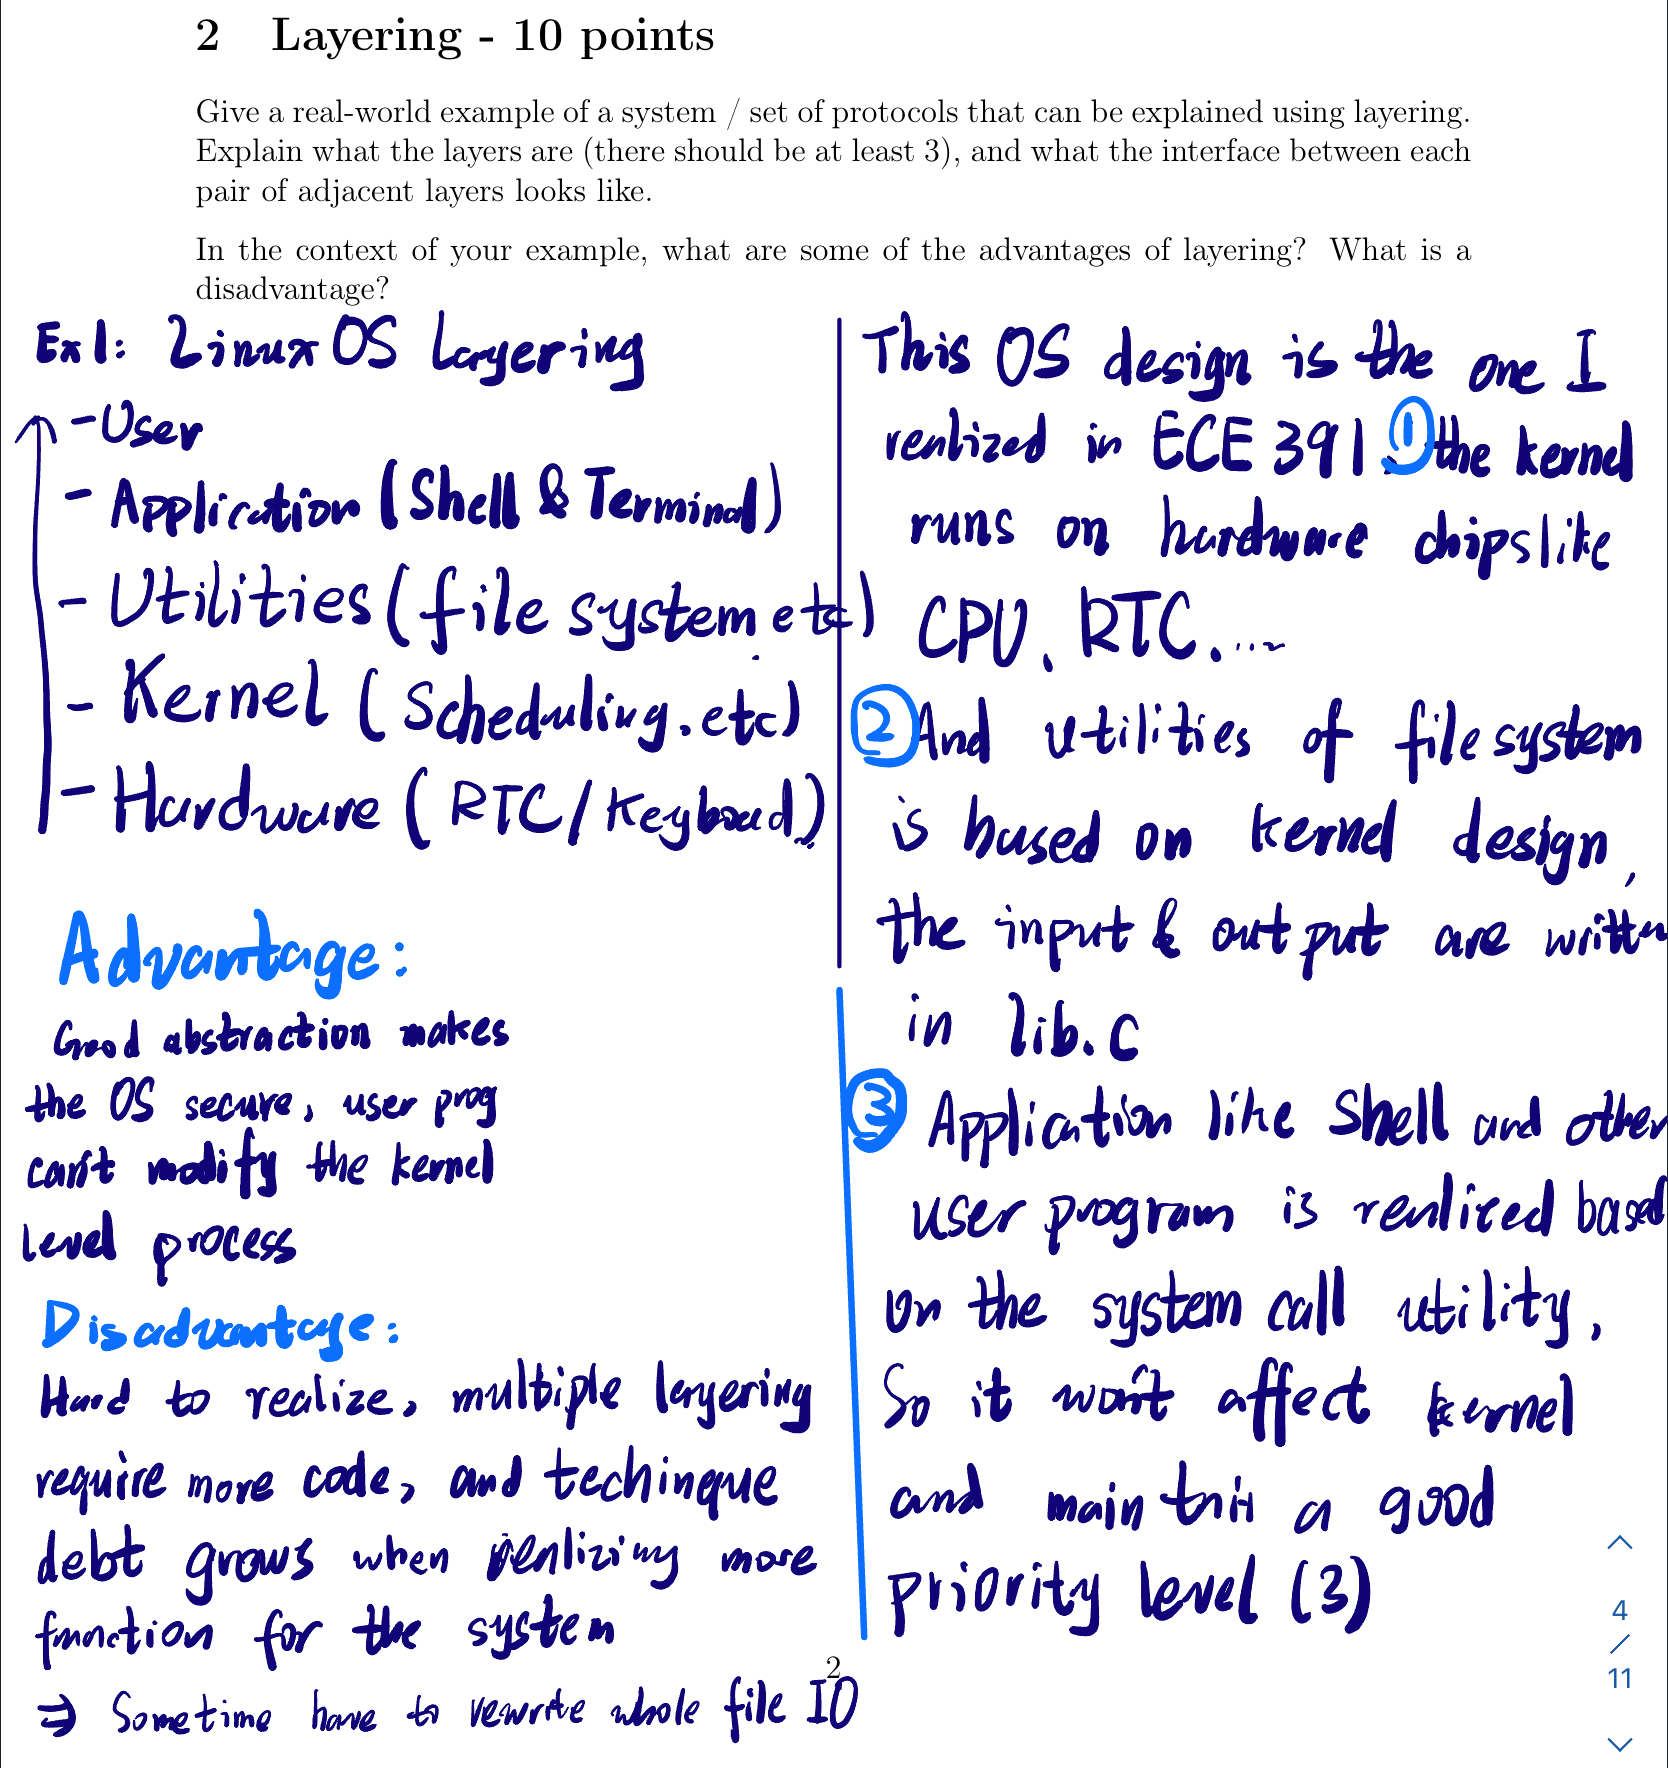 2 Layering - 10 points
Give a real-world example of a system / set of protocols that can be explained using layering.
Explain what the layers are (there should be at least 3), and what the interface between each
pair of adjacent layers looks like.
In the context of your example, what are some of the advantages of layering? What is a
disadvantage?
Ex1: Linux OS Layering
- User
- Application (Shell & Terminal)
- Utilities (file system etc)
- Kernel (Scheduling. etc)
- Hardware (RTC/Keyboard)
Advantage:
Good abstraction makes
the OS secure, user prog
can't modify the kernel
level process
Disadvantage:
Hard to realize, multiple layering
require more code, and techinque
debt grows when realizing more
function for the system
⇒ Sometime have to rewrite whole file IO
This OS design is the one I
realized in ECE 391. ① the kernel
runs on hardware chips like
CPU, RTC. ....
② And utilities of file system
is based on kernel design,
the input & output are written
in lib.c
③ Application like Shell and other
user program is realized based
on the system call utility,
So it won't affect kernel
and maintain a good
priority level (3)
2
4
/
11